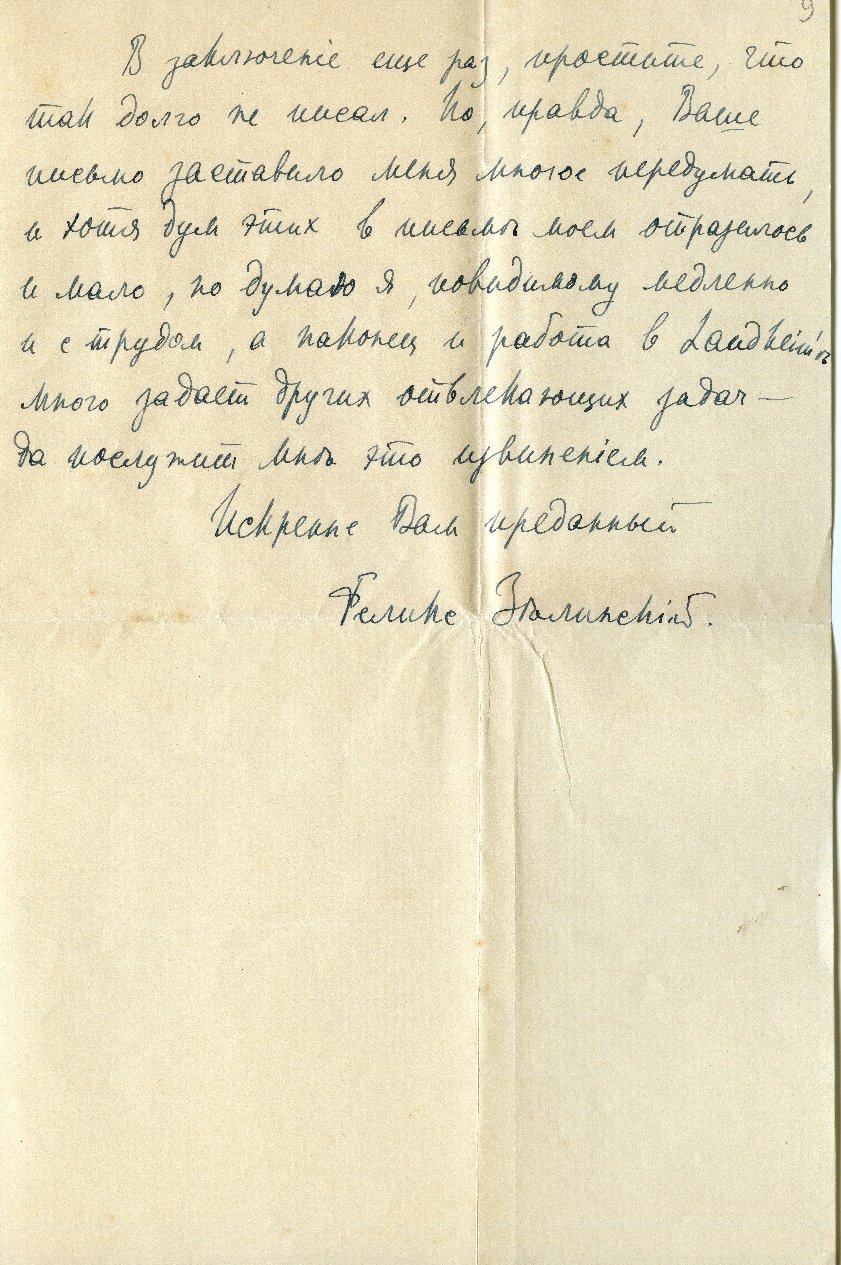 9
В заключеніе еще раз, простите, что
так долго не писал. Но, правда, Ваше
письмо заставило меня многое передумать,
и хотя дум этих в письмѣ моем отразилось
и мало, но думаю я, повидимому медленно
и с трудом, а наконец и работа в Landheim'ѣ
много задает других отвлекающих задач —
да послужит мнѣ это извиненіем.
Искренне Вам преданный
Феликс Зѣлинскій.